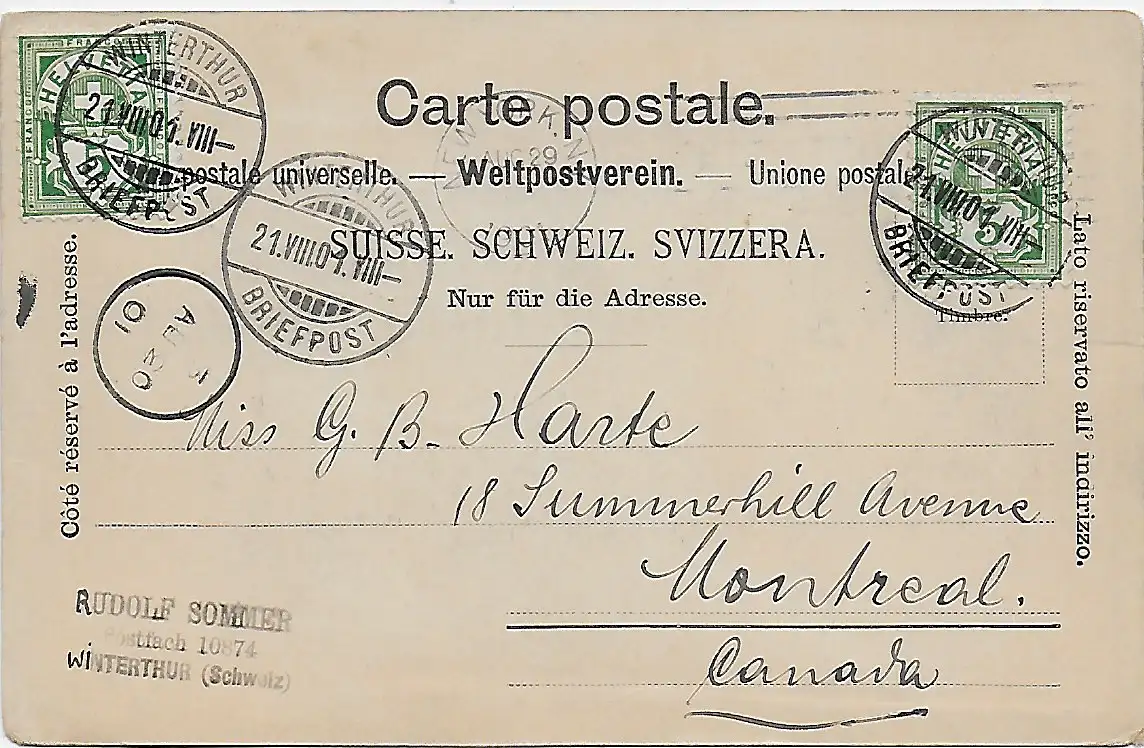 Carte postale.
postale universelle. — Weltpostverein. — Unione postale
SUISSE. SCHWEIZ. SVIZZERA.
Nur für die Adresse.
Côté réservé à l'adresse.
Lato riservato all' indirizzo.
Timbre.
FRANCO
HELVETIA
WINTERTHUR
21.VIII.01.VIII–
BRIEFPOST
WINTERTHUR
21.VIII.01.VIII–
BRIEFPOST
NEW YORK, N.
AUG 29
HELVETIA
5
WINTERTHUR
21.VIII.01.VIII–
BRIEFPOST
01
Miss G. B. Harte
18 Summerhill Avenue
Montreal.
Canada
RUDOLF SOMMER
Postfach 10874
WINTERTHUR (Schweiz)